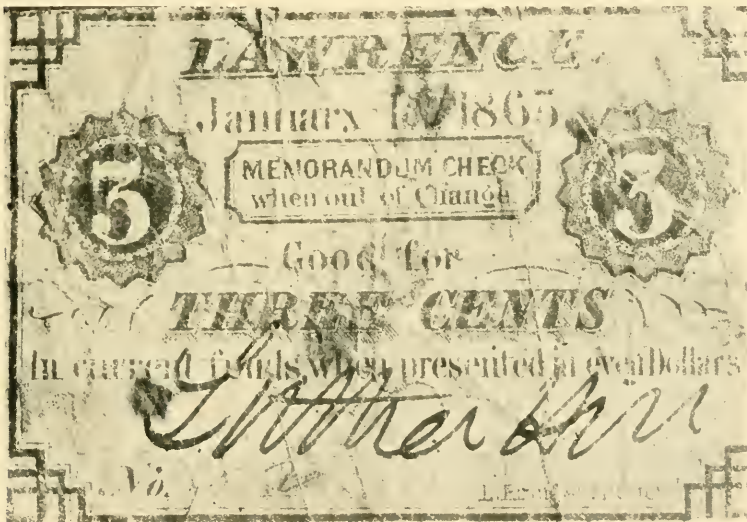 LAWRENCE
January 1865
MEMORANDUM CHECK
when out of Change
3 3
Good for
THREE CENTS
In current funds, when presented in even Dollars
No.